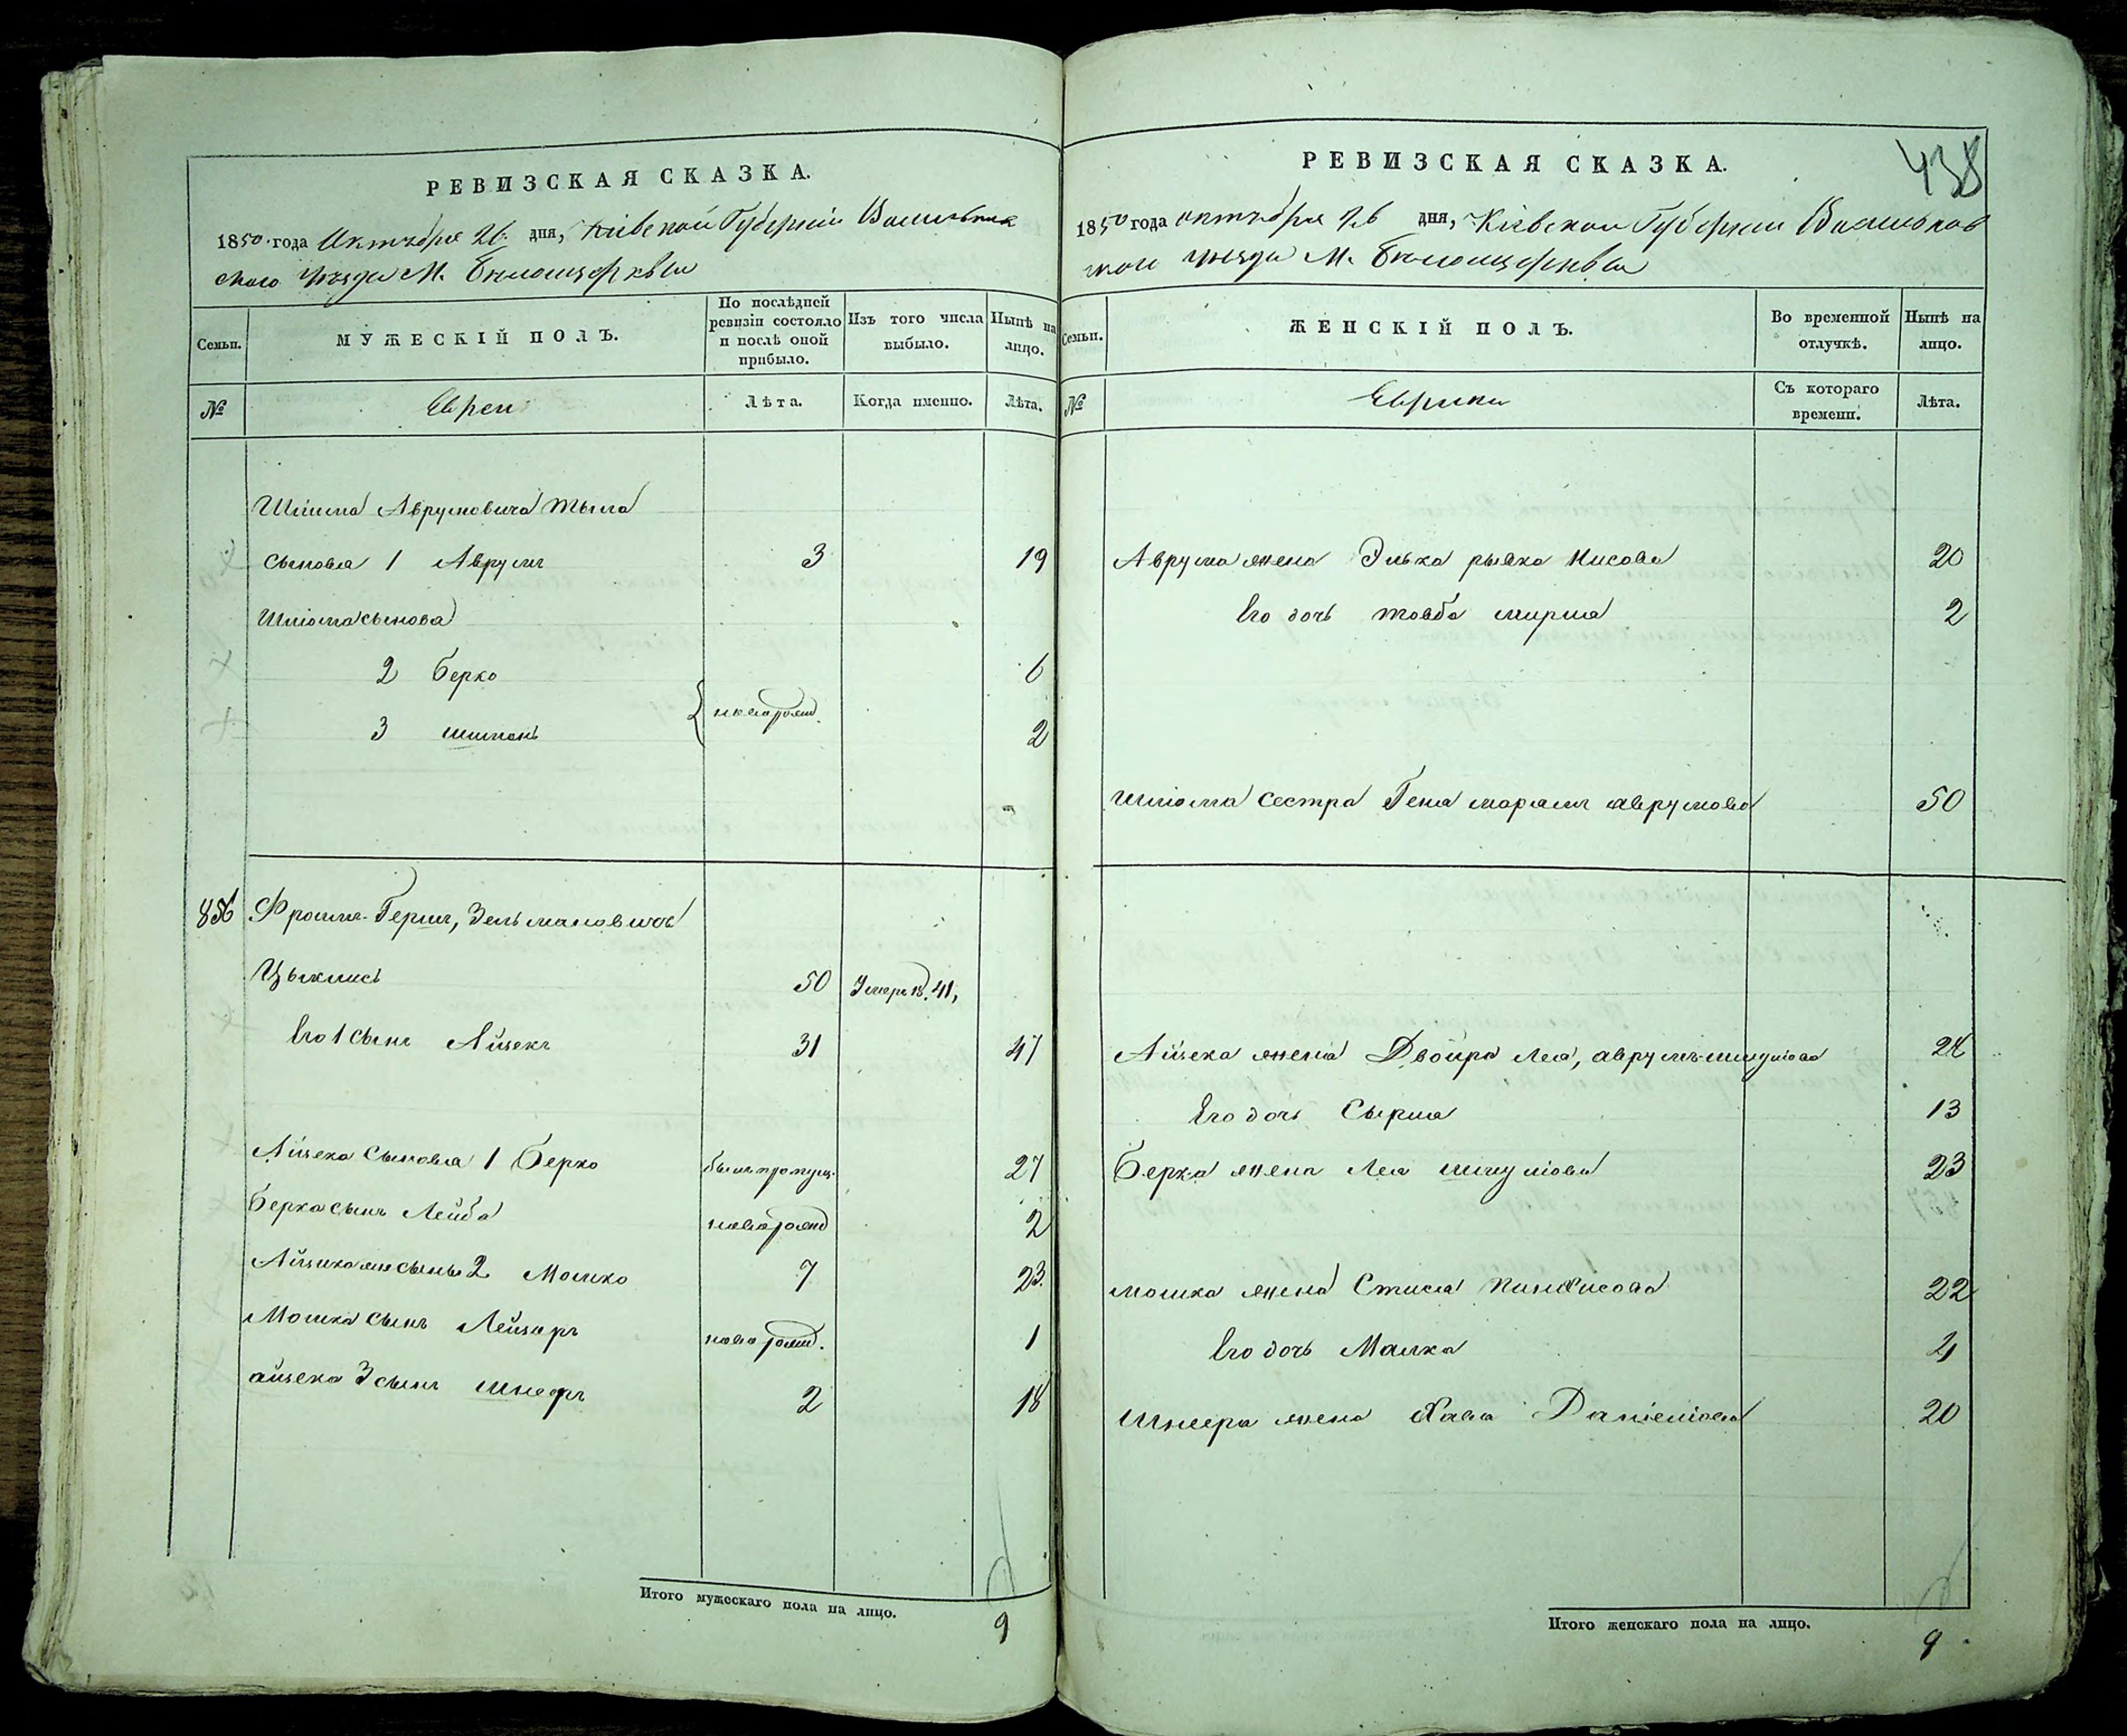 РЕВИЗСКАЯ СКАЗКА.
1850 года Октября 26 дня, Кіевской Губерніи Васильков
ского уезда М. Белоцерквы
Семьи.
МУЖЕСКІЙ ПОЛЪ.
По послѣдней ревизіи состояло и послѣ оной прибыло.
Изъ того числа выбыло.
Нынѣ на лицо.
№
Евреи
Лѣта.
Когда именно.
Лѣта.
Шліома Аврумовича
сыновья 1 Аврумъ 3 19
Шліома сынова
2 Берко 6
новорожд.
3 Шимонъ 2
856 Фроимъ-Гершъ, Зельмановичъ
50 Умеръ 18.41,
Его 1 сынъ Айзекъ 31 47
Айзека сыновья 1 Берко былъ пропущ. 27
Берка сынъ Лейба новорожд 2
2 Мошко 7 23.
Мошка сынъ Лейзоръ новорожд. 1
айзека 3 сынъ Шнеръ 2 18
Итого мужескаго пола на лицо.
9
438
РЕВИЗСКАЯ СКАЗКА.
1850 года октября 26 дня, Кіевской Губерніи Васильков
ской уезда М. Белоцерквы
Семьи.
ЖЕНСКІЙ ПОЛЪ.
Во временной отлучкѣ.
Нынѣ на лицо.
№
Еврейки
Съ котораго времени.
Лѣта.
Аврума жена Элька рывка Нисова 20
Его дочь товба мирия 2
Шліома сестра Геня марьям аврумова 50
Айзека жена Двойра Лея, аврумъ-шмулiова
Его дочь Сырма 13
Берка жена Лея шмулiова 23
мошка жена Стися Пинхисова 22
Его дочь Малка 4
Шнеера жена Хава Даніеліова 20
Итого женскаго пола на лицо.
9